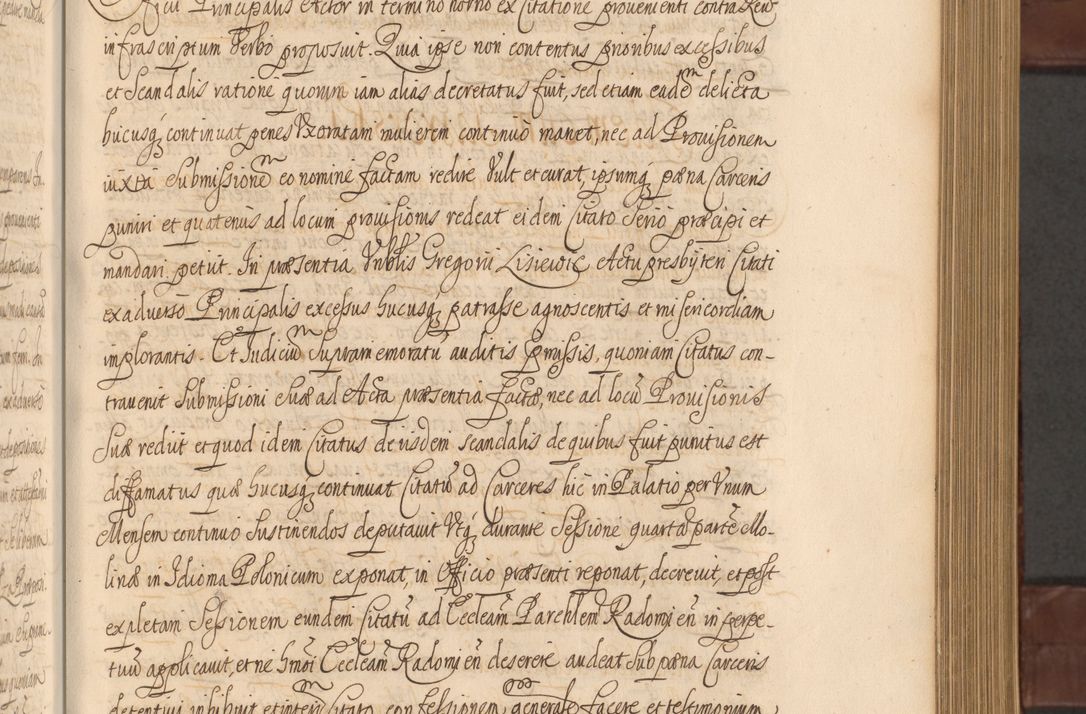 Principalis Actor in termino hodierno ex Citatione provenienti contra Reum
infrascriptum Verbo proposuit. Quia ipse non contentus prioribus excessibus
et Scandalis ratione quorum iam alias decretatus fuit, sed etiam eadẽ delicta
hucusq; continuat penes Uxoratam mulierem continuò manet, nec ad Provisionem
iuxta Submissionẽ eo nomine factam redire Vult et curat, ipsumq; pæna Carceris
puniri et quatenus ad locum provisionis redeat eidem Citato Serio præcipi et
mandari petiit. In præsentia Vnblis Gregorii Lisiewic Actu presbyteri Citati
ex adverso Principalis excessus hucusq; patrasse agnoscentis et misericordiam
implorantis. Et Iudiciũ Supramemoratũ auditis pmissis, quoniam Citatus con-
travenit Submissioni Suæ ad Acta præsentia factæ, nec ad locũ Provisionis
Suæ rediit et quod idem Citatus de iisdem scandalis de quibus fuit punitus est
diffamatus quæ hucusq; continuat Citatũ ad Carceres hic in Palatio per Vnum
Mensem continuo Sustinendos deputavit Vtq; durante Sessione quartã partẽ Mo-
linæ in Idioma Polonicum exponat, in Officio præsenti reponat, decrevit, et post
expletam Sessionem eundem Citatũ ad Eccleam Parchlem Radomień in perpe-
tuũ applicavit, et ne hmoi Eccleam Radomień deserere audeat Sub pæna Carceris
detentui inhibuit et interi Citato confessionem generalẽ facere et testimonium